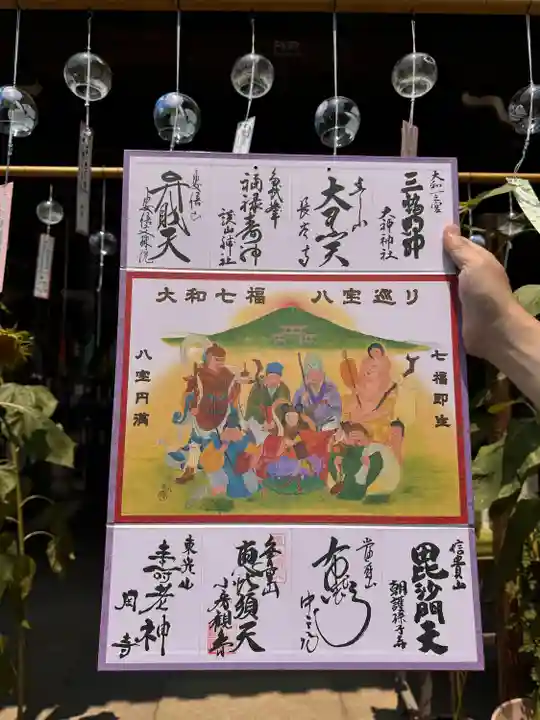 大和一之宮
三輪明神
大神神社
大黒天
長谷寺
多武峯
福禄寿神
談山神社
安倍山
弁財天
安倍文殊院
大和七福 八宝巡り
七福即生
八宝円満
信貴山
毘沙門天
朝護孫子寺
當麻山
布袋
中之坊
恵比須天
小房観音
東光山
寿老神
おふさ